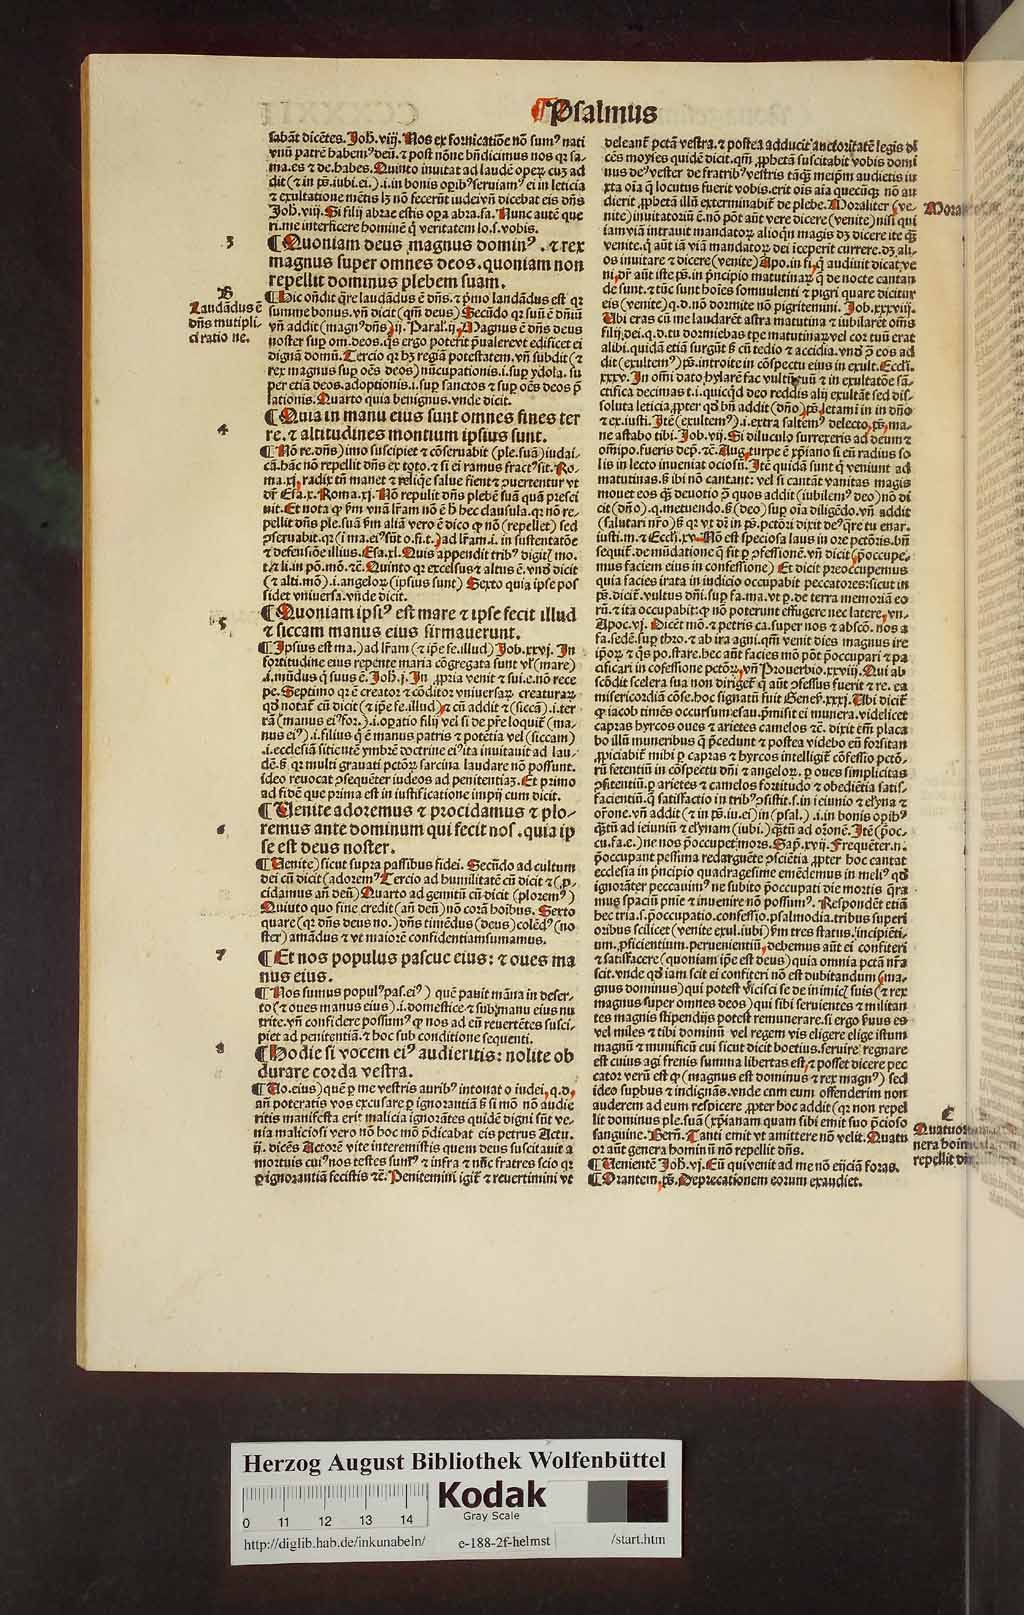 ¶Psalmus
sabāt dicētes. Joh̄. viij. Nos ex fornicatiōe nō sumꝰ nati
vnū patrē habemꝰ deū. ⁊ post nōne bn̄dicimus nos qꝛ sa-
ma. es ⁊ de. habes. Quinto inuitat ad laudē operꝫ cuꝫ ad
dit (⁊ in ps̄. iubi. ei.) .i. in bonis opibꝰ seruiamꝰ ei in leticia
⁊ exultatione mētis lꝫ nō fecerūt iudei vn̄ dicebat eis dn̄s
Joh̄. viij. Si filij abrae estis oꝑa abra. fa. Nunc autē que
ri. me interficere hominē ꝙ veritatem lo. s. vobis.
3
¶Quoniam deus magnus dominꝰ . ⁊ rex
magnus super omnes deos. quoniam non
repellit dominus plebem suam.
B
Laudādus ē
dn̄s mutipli-
ci ratio ne.
¶Hic on̄dit q̄re laudādus ē dn̄s. ⁊ p̄mo landādus est qꝛ
summe bonus. vn̄ dicit (qm̄ deus) Secūdo qꝛ suū ē dn̄iū
vn̄ addit (magnꝰ dn̄s) ij. Paral. ij. Magnus ē dn̄s deus
noster suꝑ om. deos. q̄s ergo poterit p̄ualere vt edificet ei
dignā domū. Tercio qꝛ hꝫ regiā potestatem. vn̄ subdit (⁊
rex magnus suꝑ oēs deos) nūcupationis. i. suꝑ ydola. su
per etiā deos. adoptionis. i. suꝑ sanctos ⁊ suꝑ oēs deos p̄
lationis. Quarto quia benignus. vnde dicit.
4
¶Quia in manu eius sunt omnes fines ter
re. ⁊ altitudines montium ipsius sunt.
¶Nō re. dn̄s) imo suscipiet ⁊ cōseruabit (ple. suā) iudai-
cā. hāc nō repellit dn̄s ex toto. ⁊ si ei ramus fractꝰ sit. Ro-
ma. xj. radix tn̄ manet ⁊ reliq̄e salue fient ⁊ ꝯuertentur vt
dr̄ Esa. x. Roma. xj. Nō repulit dn̄s plebē suā quā presci
uit. Et nota ꝙ ẜm vnā lr̄am nō ē h̄ hec clausula. qꝛ nō re-
pellit dn̄s ple. suā ẜm aliā vero ē dico ꝙ nō (repellet) sed
ꝯseruabit. qꝛ (i ma. eiꝰ sūt o. fi. t.) ad lr̄am. i. in sustentatōe
⁊ defensiōe illius. Esa. xl. Quis appendit tribꝰ digitꝭ mo.
ter̄ li. in pō. mō. ⁊c̄. Quinto qꝛ excelsus ⁊ altus ē. vnd̄ dicit
(⁊ alti. mō.) .i. angeloꝝ (ipsius sunt) Sexto quia ipse pos
sidet vniuersa. vn̄de dicit.
5
¶Quoniam ipsiꝰ est mare ⁊ ipse fecit illud
⁊ siccam manus eius firmauerunt.
¶Ipsius est ma.) ad lr̄am (⁊ ip̄e fe. illud) Job. xxvj. In
fortitudine eius repente maria cōgregata sunt vl̄ (mare)
.i. mūdus q̄ suus ē. Joh̄. j. In ꝓpria venit ⁊ sui. e. nō rece
pe. Septimo qꝛ ē creator ⁊ cōditor vniuersaꝝ creaturaꝝ
qd̄ notat̄ cū dicit (⁊ ip̄e fe. illud) ⁊ cū addit ⁊ (siccā) .i. ter
rā (manus eiꝰ for.) .i. oꝑatio filij vel si de pr̄e loquit̄ (ma-
nus eiꝰ) .i. filius q̄ ē manus patris ⁊ potētia vel (siccam)
.i. ecclesiā sitientē ymbrē doctrine eiꝰ ita inuitauit ad lau-
dē. ꝫ qꝛ multi grauati pctōꝝ sarcina laudare nō possunt.
ideo reuocat ꝯsequēter iudeos ad penitentiaꝫ. Et primo
ad fidē que prima est in iustificatione impij cum dicit.
6
¶Uenite adoremus ⁊ procidamus ⁊ plo-
remus ante dominum qui fecit nos. quia ip
se est deus noster.
¶Uenite) sicut supra passibus fidei. Secūdo ad cultum
dei cū dicit (adoremꝰ Tercio ad humilitatē cū dicit ⁊ (ꝓ-
cidamus an̄ deū) Quarto ad gemitū cū dicit (ploremꝰ)
Quiuto quo fine credit (an̄ deū) nō corā hoībus. Sexto
quare (qꝛ dn̄s deus no.) dn̄s timēdus (deus) colēdꝰ (no
ster) amādus ⁊ vt maiorē confidentiam sumamus.
7
¶Et nos populus pascue eius: ⁊ oues ma
nus eius.
¶Nos sumus populꝰ pas. eiꝰ) quē pauit māna in deser-
to (⁊ oues manus eius) .i. domestice ⁊ sub manu eius nu
trite. vn̄ confidere possumꝰ ꝙ nos ad eū reuertētes susci-
piet ad penitentiā. ⁊ hoc sub conditione sequenti.
8
¶Hodie si vocem eiꝰ audieritis: nolite ob
durare corda vestra.
¶Uo. eius) quē ꝑ me vestris auribꝰ intonat o iudei, q. d.
an̄ poteratis vos excusare ꝑ ignorantiā ꝫ si mō nō audie
ritis manifesta erit malicia ignorātes quidē digni sūt ve-
nia maliciosi vero nō hoc mō p̄dicabat eis petrus Actu.
ij. dicēs Actorē vite interemistis quem deus suscitauit a
mortuis cuiꝰ nos testes sumꝰ ⁊ infra ⁊ nūc fratres scio qꝛ
ꝑ ignorantiā fecistis ⁊c̄. Penitemini igit̄ ⁊ reuertimini vt
deleant̄ pctā vestra. ⁊ postea adducit auctoritatē legis di
cēs moyses quidē dicit. qm̄ ꝓphetā suscitabit vobis domi
nus deꝰ vester de fratribꝰ vestris tāqꝫ meip̄m audietis iu
xta oīa q̄ locutus fuerit vobis. erit oīs aīa quecūqꝫ nō au
dierit ꝓphetā illū exterminabit̄ de plebe. Moraliter (ve-
nite) inuitatoriū ē. nō pōt aūt vere dicere (venite) nisi qui
iam viā intrauit mandatoꝝ alioqn̄ magis dꝫ dicere ite qꝫ
venite. q̄ aūt iā viā mandatoꝝ dei iceperit currere. dꝫ ali-
os inuitare ⁊ dicere (venite) Apo. in fi. q̄ audiuit dicat, ve
ni, dr̄ aūt iste ps̄. in p̄ncipio matutinaꝝ q̄ de nocte cantan
de sunt. ⁊ tūc sunt hoīes somnulenti ⁊ pigri quare dicitur
eis (venite) q. d. nō dormite nō pigritemini. Job. xxxviij.
Ubi eras cū me laudarēt astra matutina ⁊ iubilarēt om̄s
filij dei. q. d. tu dormiebas tp̄e matutinaꝝ vel cor tuū erat
alibi. quidā etiā surgūt ꝫ cū tedio ⁊ accidia. vnd̄ ꝓ eos ad
dit (exultemꝰ) ps̄. introite in cōspectu eius in exult. Eccl̄i.
xxxv. In om̄i dato hylarē fac vultū tuū ⁊ in exultatōe sā-
ctifica decimas t. i. quicqd̄ deo reddis alij exultāt sed dis-
soluta leticia, ꝓpter qd̄ bn̄ addit (dn̄o) ps̄. letamī in in dn̄o
⁊ ex. iusti. Itē (exultemꝰ) .i. extra saltemꝰ delecto, ps̄, ma-
ne astabo tibi. Job. vij. Si diluculo surrexeris ad deum ⁊
om̄ipo. fueris dep̄. ⁊c̄. Aug. turpe ē xp̄iano si eū radius so
lis in lecto inueniat ociosū. Itē quidā sunt q̄ veniunt ad
matutinas. ꝫ ibi nō cantant: vel si cantāt vanitas magis
mouet eos qꝫ deuotio ꝓ quos addit (iubilemꝰ deo) nō di
cit (dn̄o) .q. metuendo. ꝫ (deo) suꝑ oīa diligēdo. vn̄ addit
(salutari nr̄o) ꝫ qꝛ vt dr̄ in ps̄. pctōri dixit deꝰ q̄re tu enar.
iusti. m. ⁊ Eccl̄i. xv. Nō est speciosa laus in ore pctōris. bn̄
sequit̄. de mūdatione q̄ sit ꝑ ꝯfessionē. vn̄ dicit (p̄occupe-
mus faciem eius in confessione) Et dicit preoccupemus
quia facies irata in iudicio occupabit peccatores: sicut in
ps̄. dicit̄. vultus dn̄i. suꝑ fa. ma. vt ꝑ. de terra memoriā eo
rū. ⁊ ita occupabit: ꝙ nō poterunt effugere nec latere, vn̄.
Apoc. vj. Dicēt mō. ⁊ petris ca. super nos ⁊ abscō. nos a
fa. sedē. suꝑ thro. ⁊ ab ira agni. qm̄ venit dies magnus ire
ip̄oꝝ ⁊ q̄s po. stare. hec aūt facies mō pōt p̄occupari ⁊ pa
cificari in cōfessione pctōꝝ, vn̄ Prouerbio. xxviij. Qui ab
scōdit scelera sua non diriget̄ q̄ aūt ꝯfessus fuerit ⁊ re. ea
misericordiā cōse. hoc signatū fuit Genes̄. xxxj. Ubi dicit̄
ꝙ iacob timēs occursum esau. p̄misit ei munera. videlicet
capras hyrcos oues ⁊ arietes camelos ⁊c̄. dixit em̄ placa
bo illū muneribus q̄ p̄cedunt ⁊ postea videbo eū forsitan
ꝓpiciabit̄ mihi ꝑ capras ⁊ hyrcos intelligit̄ cōfessio pctō-
rū fetentiū in cōspectu dn̄i ⁊ angeloꝝ. ꝑ oues simplicitas
ꝯfitentiū. ꝑ arietes ⁊ camelos fortitudo ⁊ obediētia satis-
facientiū. q̄ satisfactio in tribꝰ ꝯsistit. s. in ieiunio ⁊ elyna ⁊
or̄one. vn̄ addit (⁊ in ps̄. iu. ei) in (psal.) .i. in bonis opibꝰ
qꝫtū ad ieiuniū ⁊ elynam (iubi.) qꝫtū ad or̄onē. Itē (p̄oc-
cu. fa. e.) ne nos p̄occupet mors. Sap̄. xvij. Frequēter. n̄.
p̄occupant pessima redargutē ꝯsciētia, ꝓpter hoc cantat
ecclesia in p̄ncipio quadragesime emēdemus in meliꝰ qd̄
ignorāter peccauimꝰ ne subito p̄occupati die mortis q̄ra
mus spaciū pn̄ie ⁊ inuenire nō possumꝰ. Respondēt etiā
hec tria. s. p̄occupatio. confessio. psalmodia. tribus superi
oribus scilicet (venite exul. iubi) ẜm tres status. incipiēti-
um. ꝓficientium. perueniēntiū, debemus aūt ei confiteri
⁊ satisfacere (quoniam ip̄e est deus) quia omnia pctā nr̄a
scit. vnde qd̄ iam scit ei confiteri nō est dubitandum (ma-
gnus dominus) qui potest vlcisci se de inimicꝭ suis (⁊ rex
magnus super omnes deos) qui sibi seruientes ⁊ militan
tes magnis stipendijs potest remunerare. si ergo ẜuus es
vel miles ⁊ tibi dominū vel regem vis eligere elige istum
magnū ⁊ munificū cui sicut dicit boetius. seruire regnare
est cuius agi frenis summa libertas est, ⁊ posset dicere pec
cator verū est ꝙ (magnus est dominus ⁊ rex magnꝰ) sed
ideo suꝑbus ⁊ indignās. vnde cum eum offenderim non
auderem ad eum respicere, ꝓpter hoc addit (qꝛ non repel
lit dominus ple. suā (xp̄ianam quam sibi emit suo p̄cioso
sanguine. Bern̄. Tanti emit vt amittere nō velit. Quatu
or aūt genera hominū nō repellit dn̄s.
¶Uenientē Joh̄. vj. Eū qui venit ad me nō eijciā foras.
¶Orantem, ps̄. Deprecationem eorum exaudiet.
C
repellit
Herzog August Bibliothek Wolfenbüttel
Kodak
Gray Scale
0 11 12 13 14
http://diglib.hab.de/inkunabeln/ e-188-2f-helmst /start.htm